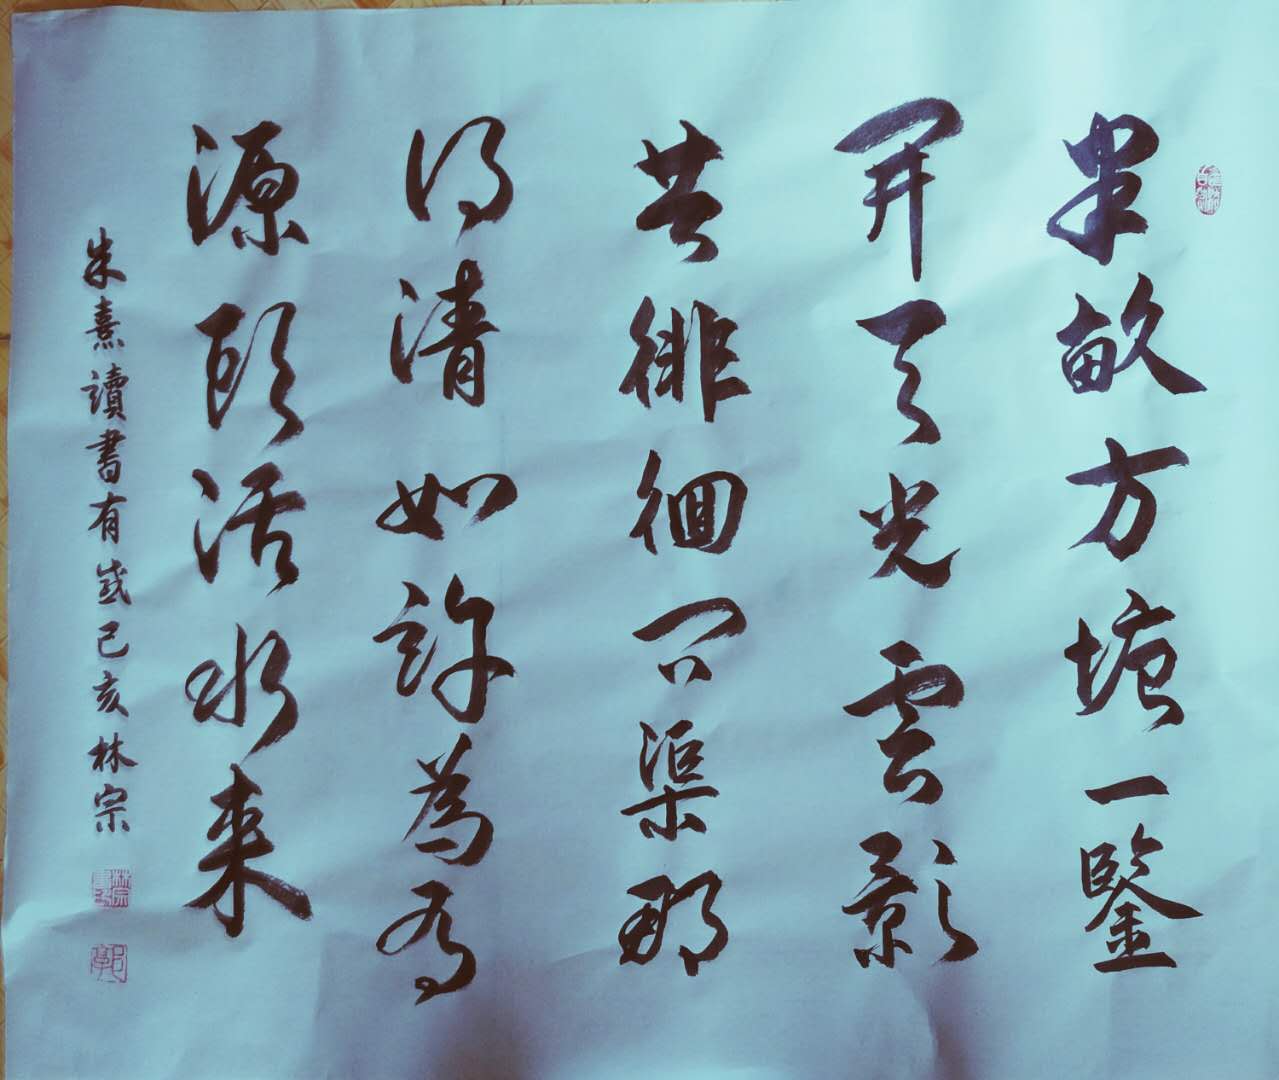 半畝方塘一鑒
開天光雲影
共徘徊問渠那
得清如許為有
源頭活水来
朱熹讀書有感己亥林宗
郭